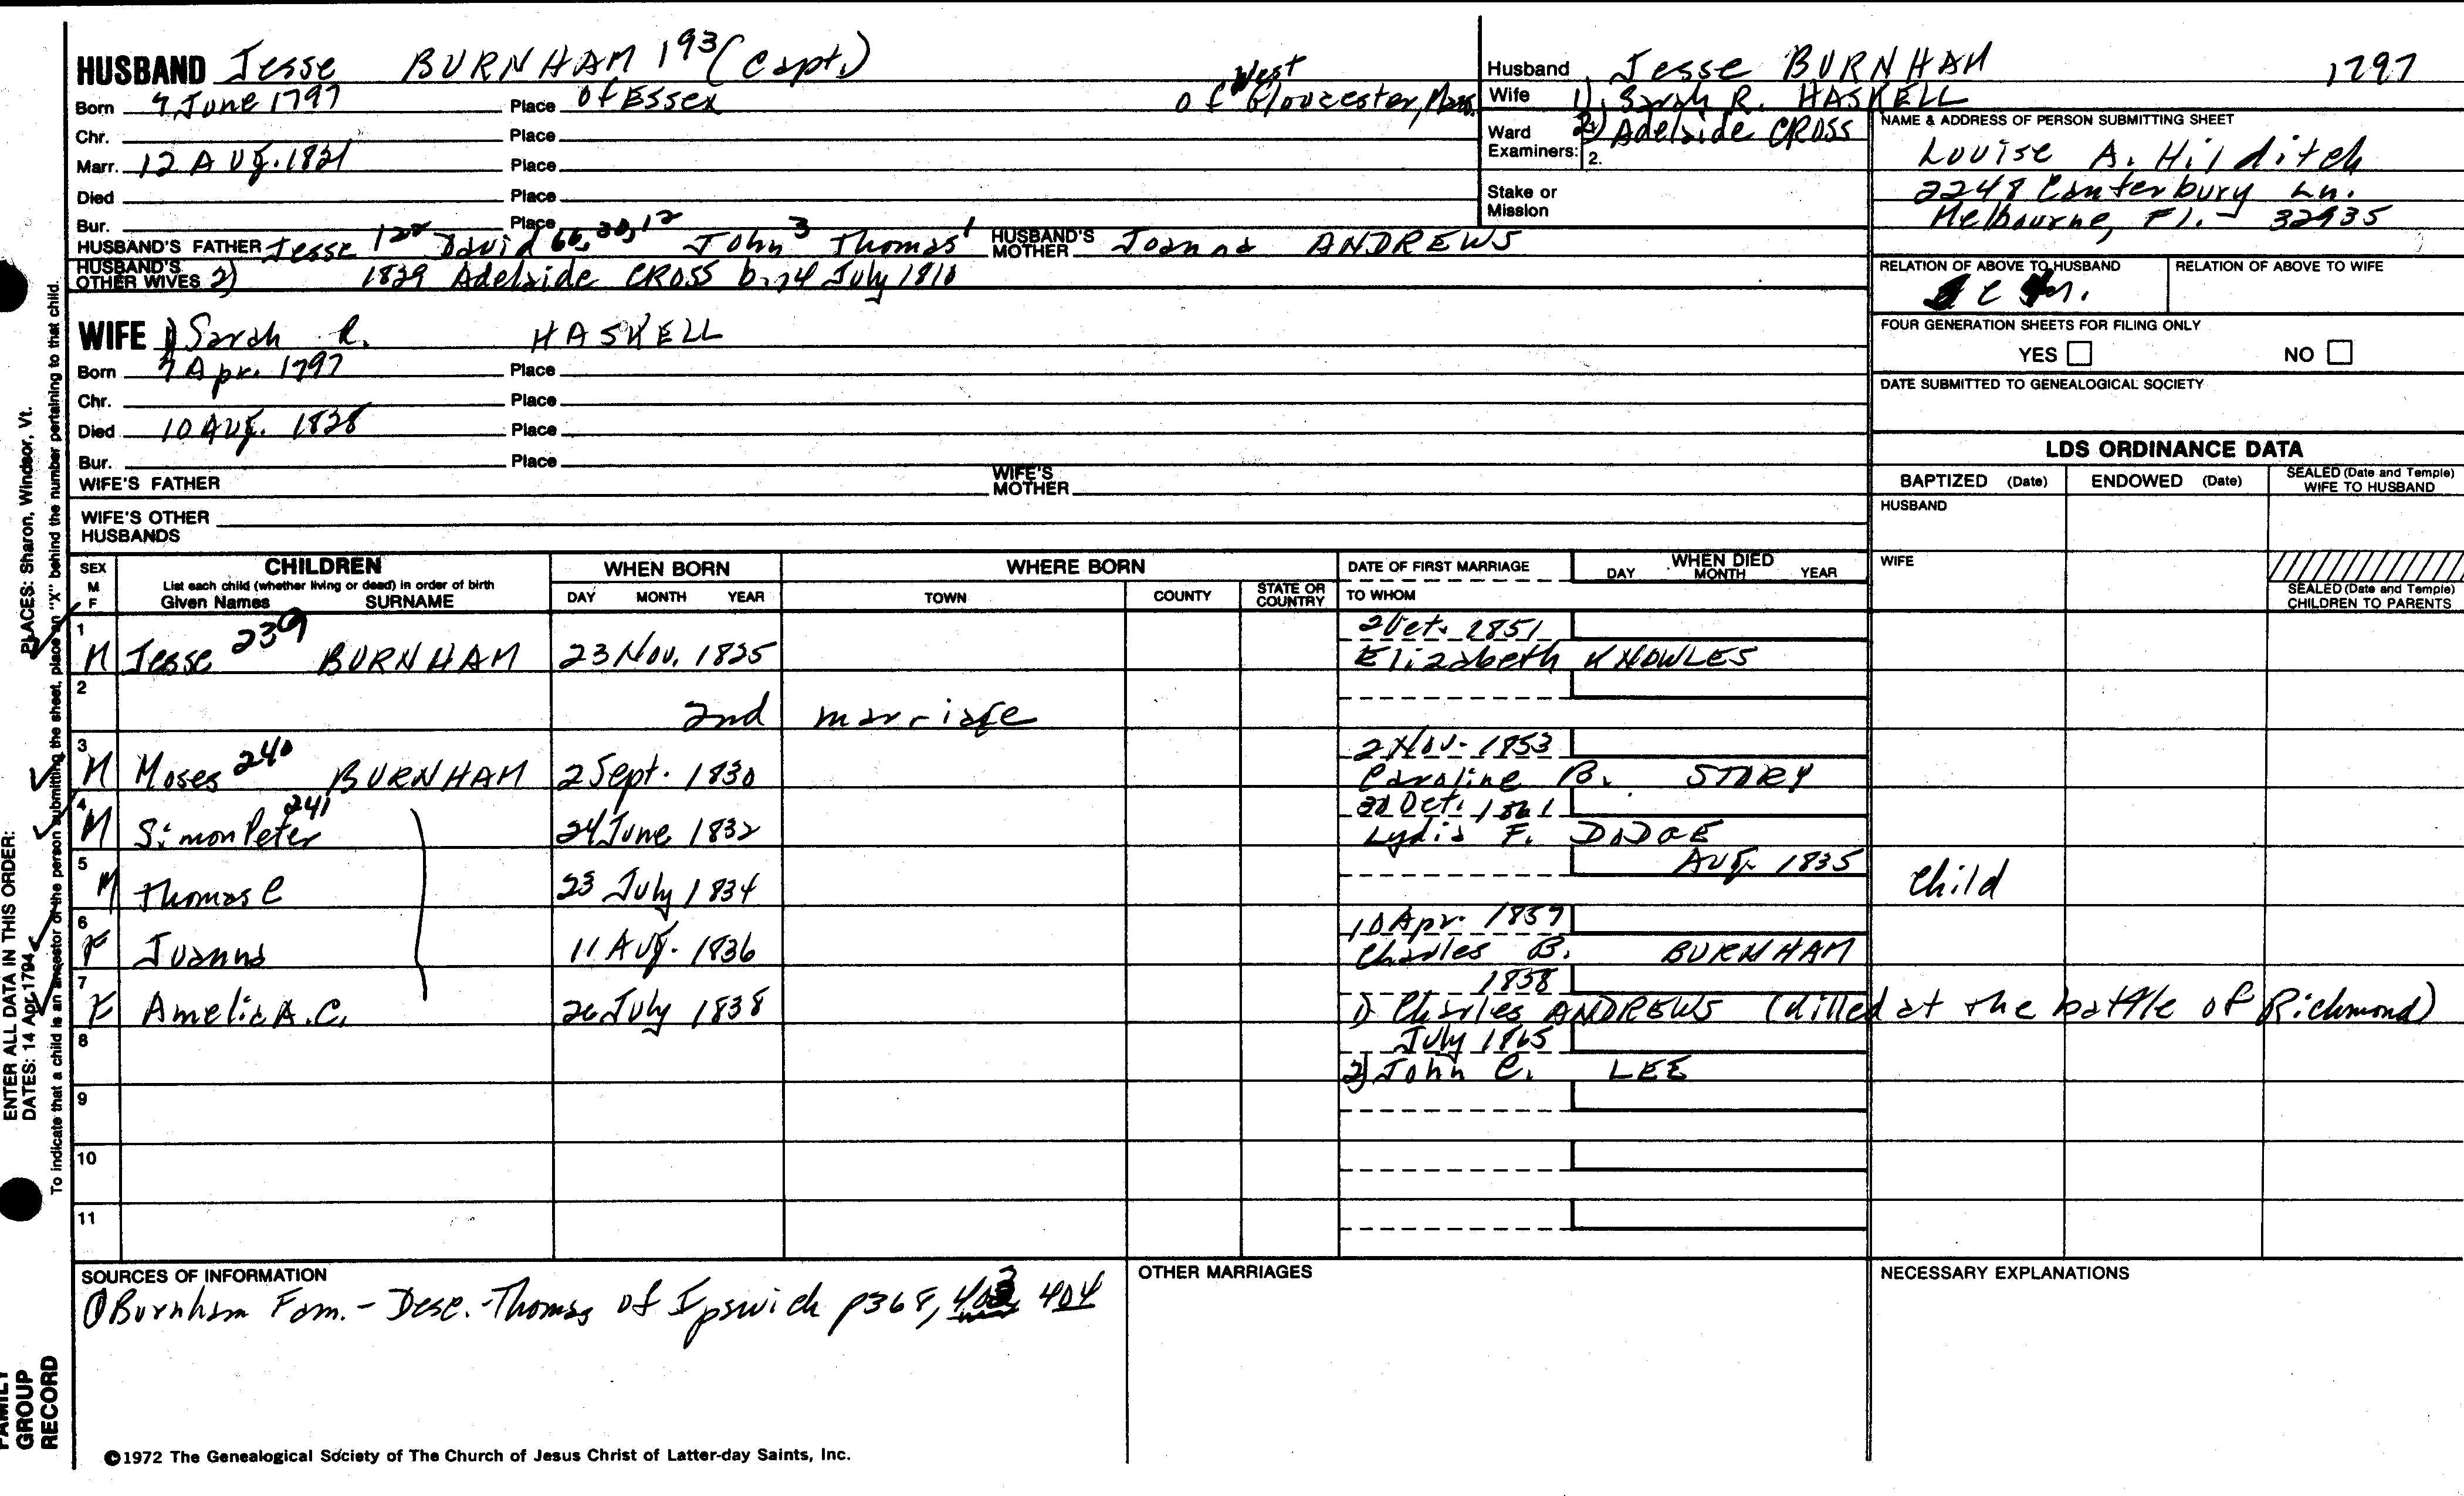 HUSBAND Jesse BURNHAM 193 (Capt.)
Born 7 June 1797 Place of Essex of West Gloucester, Mass.
Chr. Place
Marr. 12 Aug. 1821 Place
Died Place
Bur. Place
HUSBAND'S FATHER Jesse 122 David 66, 30, 12 John 3 Thomas 1 HUSBAND'S MOTHER Joanna ANDREWS
HUSBAND'S OTHER WIVES 2) 1829 Adelaide CROSS b. 14 July 1810
WIFE 1) Sarah R. HASKELL
Born 7 Apr. 1797 Place
Chr. Place
Died 10 Aug. 1828 Place
Bur. Place
WIFE'S FATHER WIFE'S MOTHER
WIFE'S OTHER HUSBANDS
Husband Jesse BURNHAM 1797
Wife 1) Sarah R. HASKELL
Ward 2) Adelaide CROSS
Examiners: 2.
Stake or Mission
NAME & ADDRESS OF PERSON SUBMITTING SHEET
Louise A. Hilditch
2248 Canterbury Ln.
Melbourne, Fl. - 32935
RELATION OF ABOVE TO HUSBAND RELATION OF ABOVE TO WIFE
FOUR GENERATION SHEETS FOR FILING ONLY
YES NO
DATE SUBMITTED TO GENEALOGICAL SOCIETY
LDS ORDINANCE DATA
BAPTIZED (Date) ENDOWED (Date) SEALED (Date and Temple) WIFE TO HUSBAND
HUSBAND
WIFE
SEALED (Date and Temple) CHILDREN TO PARENTS
SEX M F CHILDREN List each child (whether living or dead) in order of birth Given Names SURNAME WHEN BORN DAY MONTH YEAR WHERE BORN TOWN COUNTY STATE OR COUNTRY DATE OF FIRST MARRIAGE TO WHOM WHEN DIED DAY MONTH YEAR
1 2 Oct. 1851
M Jesse 239 BURNHAM 23 Nov. 1825 Elizabeth KNOWLES
2
2nd marriage
3 2 Nov. 1853
M Moses 240 BURNHAM 2 Sept. 1830 Caroline B. STORY
4 20 Oct. 1861
M Simon Peter 241 24 June 1832 Lydia F. DODGE
5 Aug. 1835
M Thomas C 23 July 1834 Child
6 10 Apr. 1859
F Joanna 11 Aug. 1836 Charles B. BURNHAM
7 1858
F Amelia A. C. 26 July 1838 1) Charles ANDREWS (killed at the battle of Richmond)
8 July 1865
2) John C. LEE
9
10
11
SOURCES OF INFORMATION
1) Burnham Fam. - Desc. - Thomas of Ipswich p368, 403, 404
OTHER MARRIAGES
NECESSARY EXPLANATIONS
©1972 The Genealogical Society of The Church of Jesus Christ of Latter-day Saints, Inc.
FAMILY GROUP RECORD
ENTER ALL DATA IN THIS ORDER:
DATES: 14 Apr 1794 PLACES: Sharon, Windsor, Vt.
To indicate that a child is an ancestor of the person submitting the sheet, place an "X" behind the number pertaining to that child.